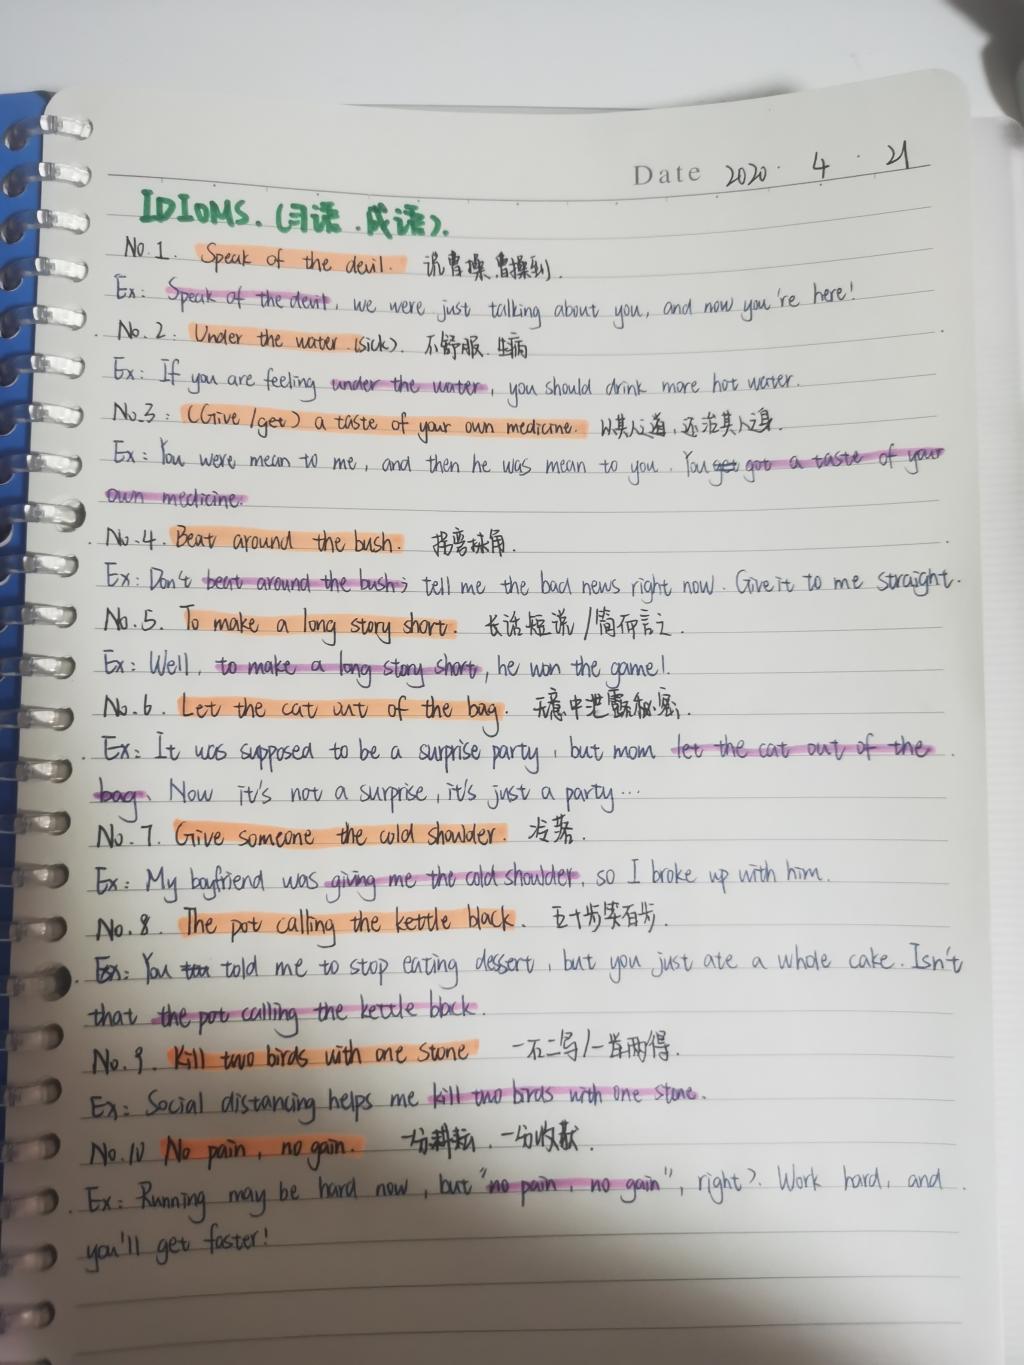 Date 2020 · 4 · 21
IDIOMS. (习语.成语).
No.1. Speak of the devil. 说曹操,曹操到.
Ex: Speak of the devil, we were just talking about you, and now you're here!
No.2: Under the water.(sick). 不舒服.生病
Ex: If you are feeling under the water, you should drink more hot water.
No.3: (Give/get) a taste of your own medicine. 以其人之道,还治其人之身.
Ex: You were mean to me, and then he was mean to you. You got a taste of your
own medicine.
No.4. Beat around the bush. 拐弯抹角.
Ex: Don't beat around the bush; tell me the bad news right now. Give it to me straight.
No.5. To make a long story short. 长话短说/简而言之.
Ex: Well, to make a long story short, he won the game!
No.6. Let the cat out of the bag. 无意中泄露秘密.
Ex: It was supposed to be a surprise party, but mom let the cat out of the
bag. Now it's not a surprise, it's just a party...
No.7. Give someone the cold shoulder. 冷落.
Ex: My boyfriend was giving me the cold shoulder, so I broke up with him.
No.8. The pot calling the kettle black. 五十步笑百步.
Ex: You told me to stop eating dessert, but you just ate a whole cake. Isn't
that the pot calling the kettle black.
No.9. Kill two birds with one stone 一石二鸟/一举两得.
Ex: Social distancing helps me kill two birds with one stone.
No.10 No pain, no gain. 一分耕耘.一分收获.
Ex: Running may be hard now, but "no pain, no gain", right? Work hard, and
you'll get faster!